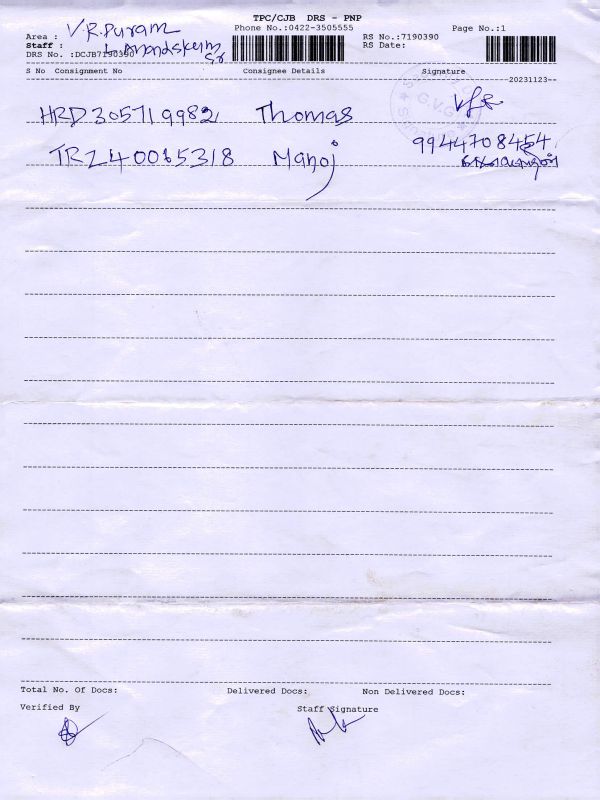 TPC/CJB DRS - PNP
Area : V.R.Puram
Phone No.:0422-3505555
Page No.:1
RS No.:7190390
Staff :
RS Date:
DRS No. :DCJB7190390
S No Consignment No Consignee Details Signature
20231123
HRD305719982 Thomas
G.V.G
TRZ40065318 Manoj
9944708454
Total No. Of Docs: Delivered Docs: Non Delivered Docs:
Verified By Staff Signature